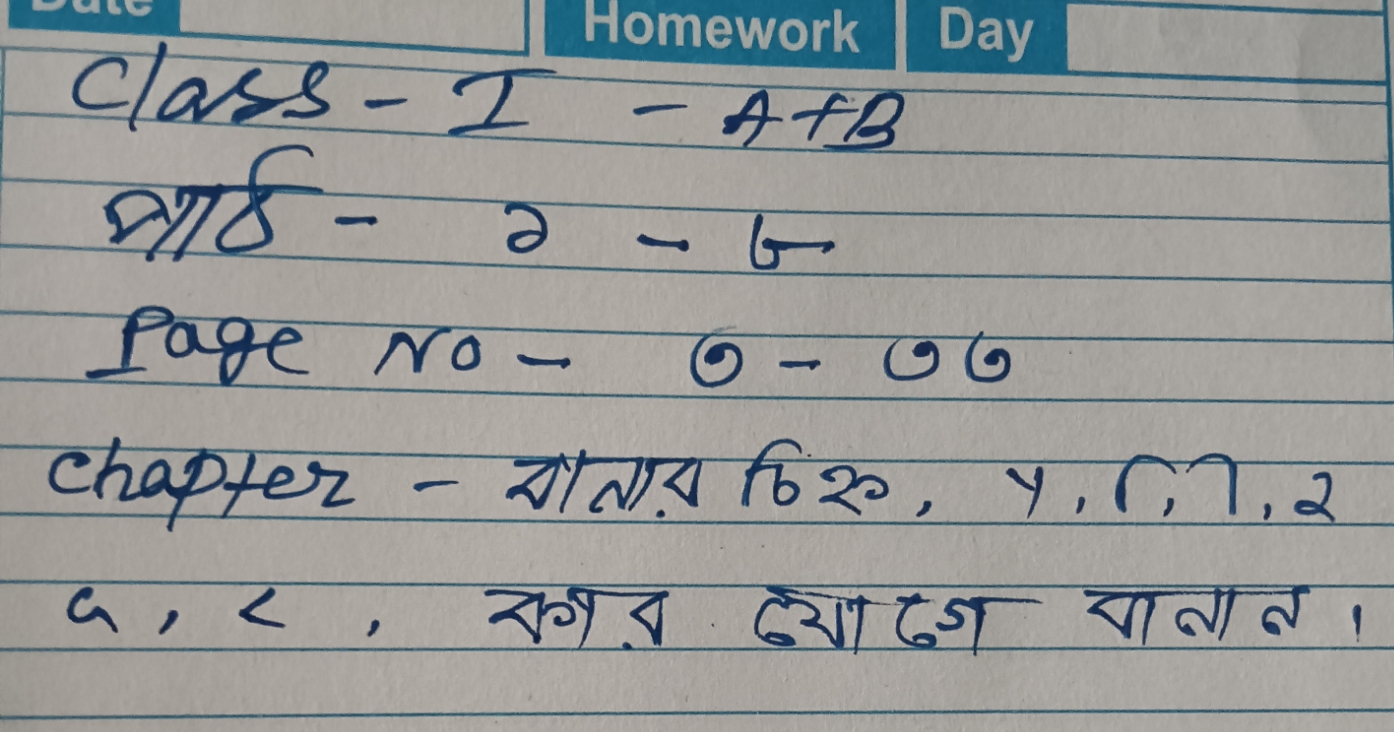 Date Homework Day
Class - I - A+B
পাঠ - ১ - ৮
Page No - ৩ - ৩৩
Chapter - বানার চিহ্ন, া, ি, ী, ২
ৎ, <, কার যোগে বানান।